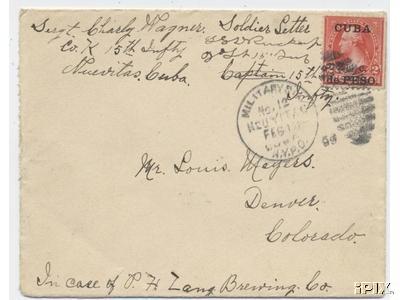 Sergt. Charly Wagner. Soldier Letter
Co. K 15th Infty
Nuevitas, Cuba. Captain 15th
Infty
CUBA
PESO.
MILITARY
No. 12
NUEVITAS
FEB
N.Y.P.O.
Mr. Louis Meyers.
Denver.
Colorado.
In case of P. H Zang Brewing. Co.
iPIX